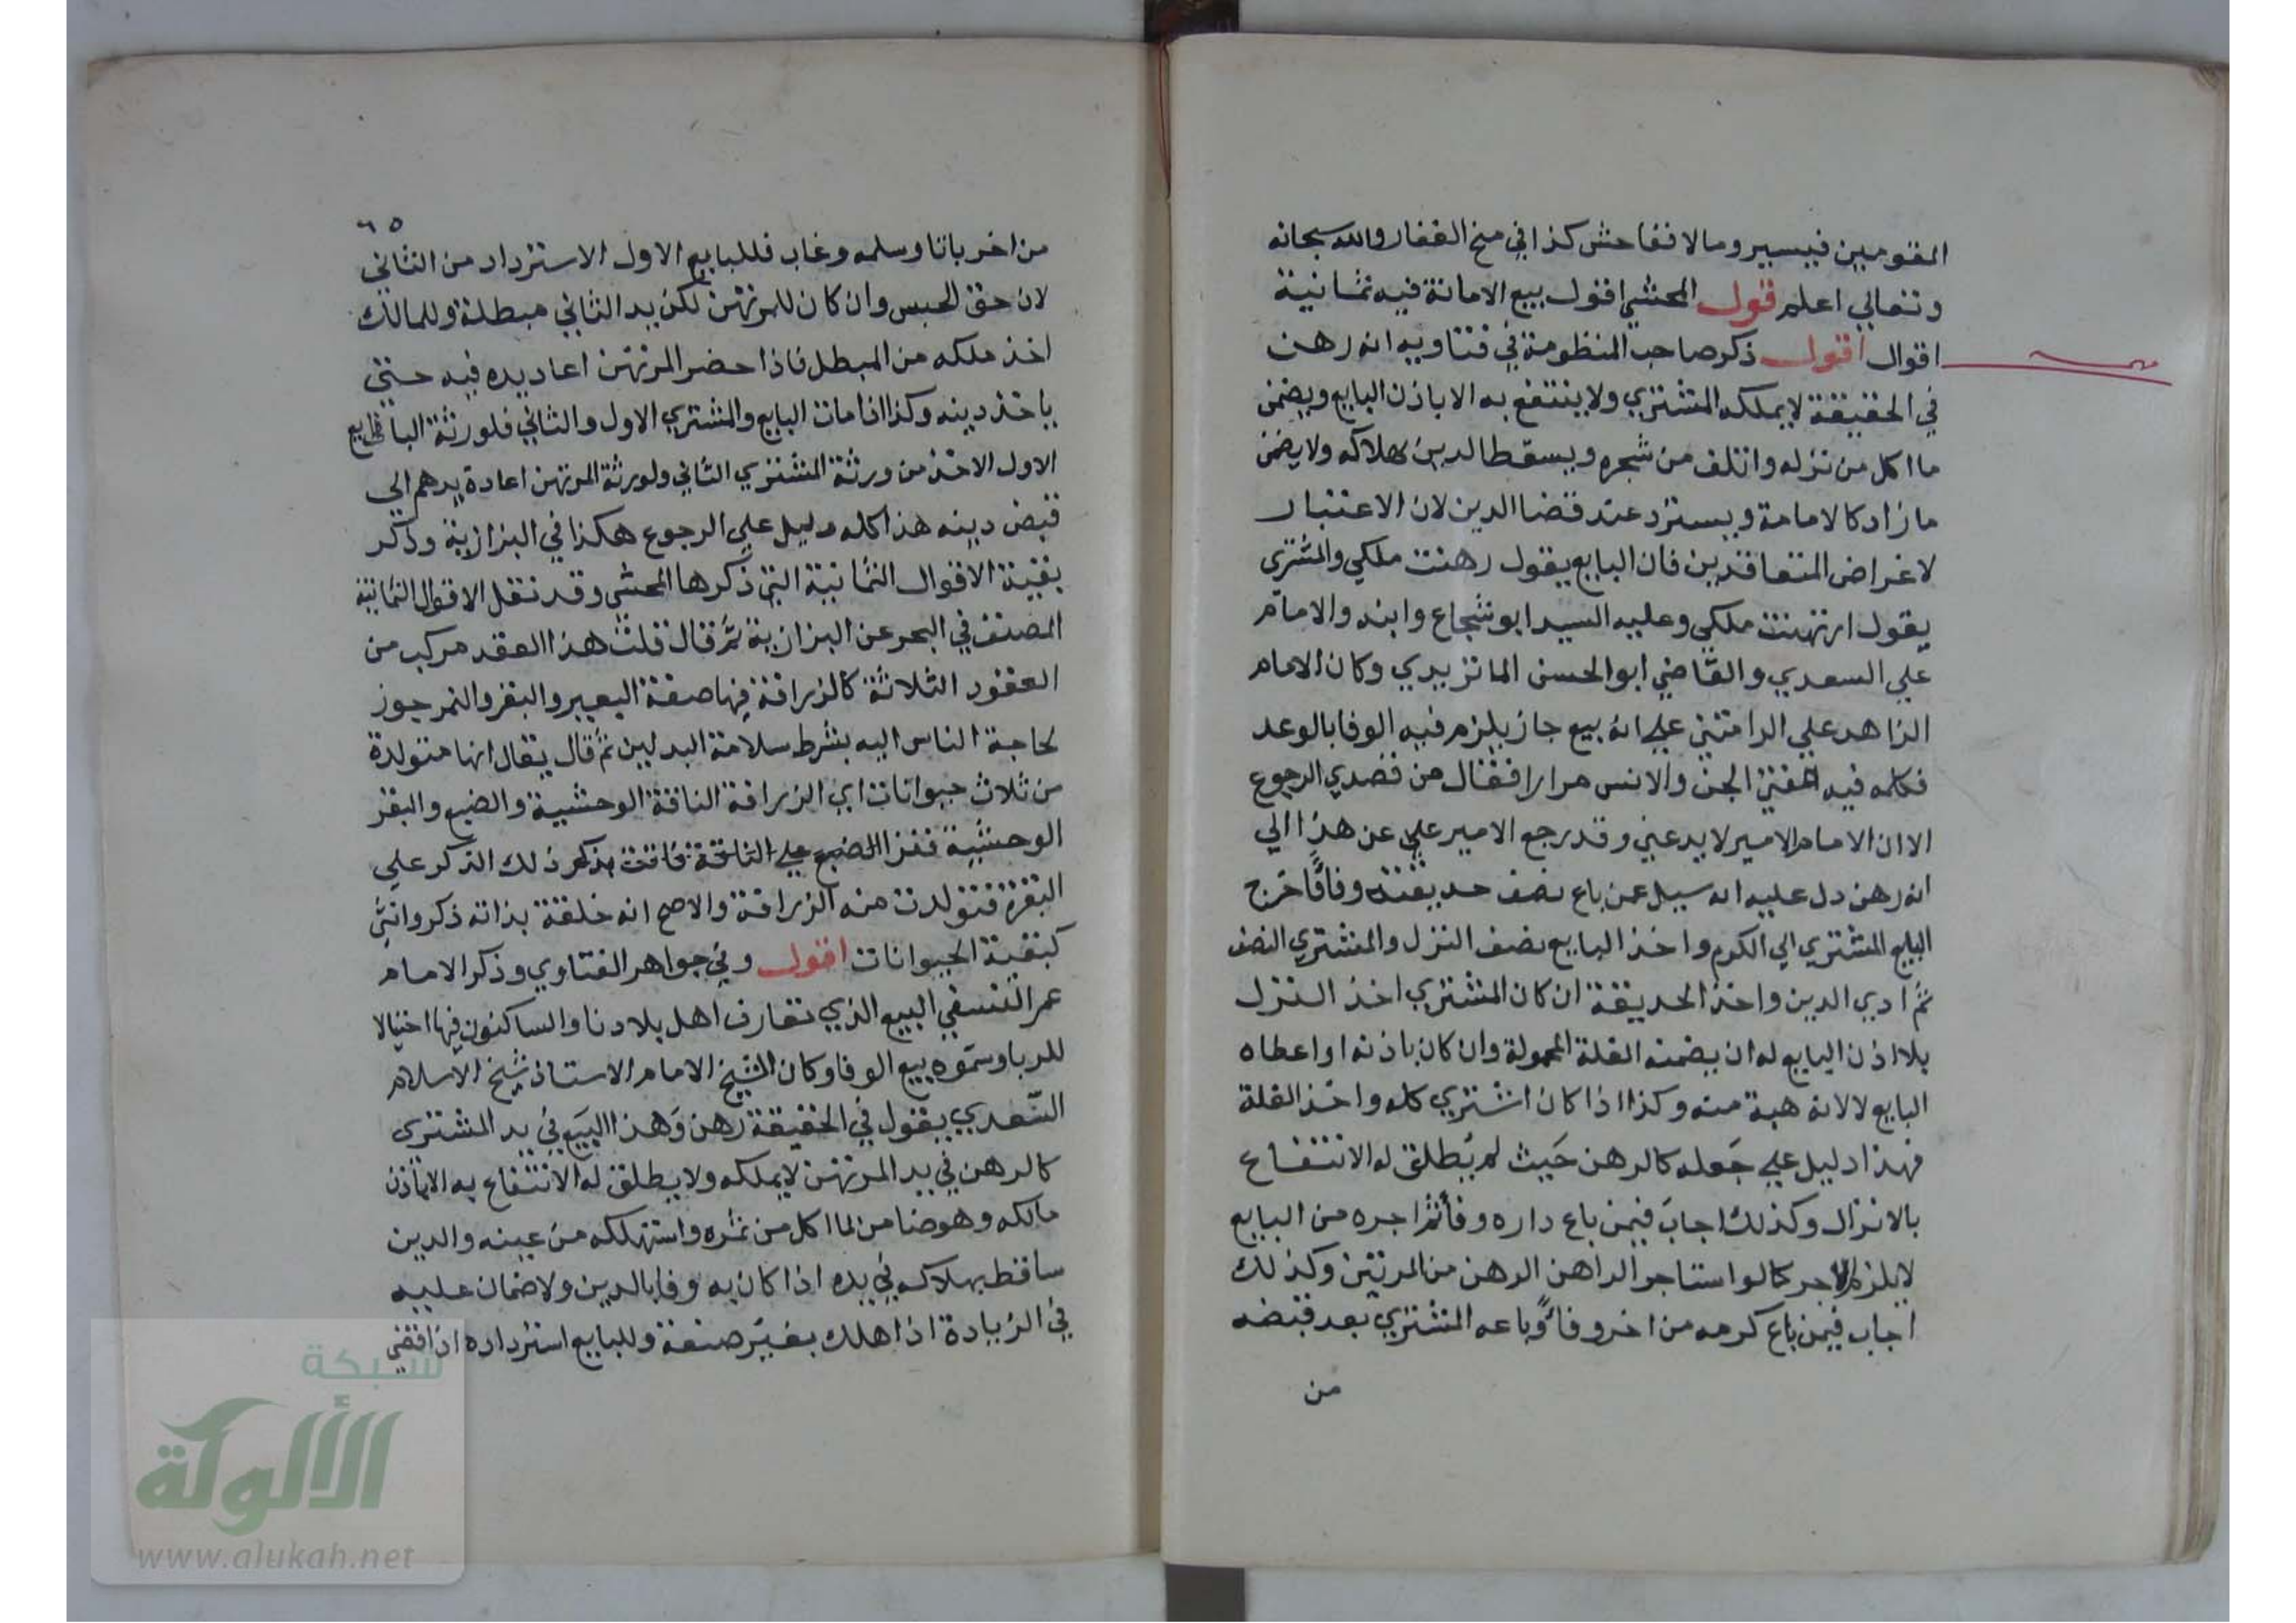 المقومين فيسير ومالا ففاحش كذا في منح الغفار والله سبحانه
وتعالي اعلم قول المحشي اقول بيع الامانة فيه ثمانية
اقوال اقول ذكر صاحب المنظومة في فتاويه انه رهن
في الحقيقة لا يملكه المشتري ولا ينتفع به الا باذن البايع ويضمن
ما اكل من نزله واتلف من شجره ويسقط الدين بهلاكه ولا يضمن
ما زاد كالامامة ويسترد عند قضا الدين لان الاعتبار
لاغراض المتعاقدين فان البايع يقول رهنت ملكي والمشتري
يقول ارتهنت ملكي وعليه السيد ابو شجاع وابنه والامام
علي السعدي والقاضي ابو الحسن الماتريدي وكان الامام
الزاهد علي الرامتني علي انه بيع جاز يلزم فيه الوفا بالوعد
فكلمه فيه مفتي الجن والانس مرارا فقال من قصدي الرجوع
الا ان الامام الامير لا يدعني وقد رجع الامير علي عن هذا الي
انه رهن دل عليه انه سيل عمن باع نصف حديقته وفاقا خرج
البايع المشتري الي الكوم واخذ البايع نصف النزل والمشتري النصف
ثم ادي الدين واخذ الحديقة ان كان المشتري اخذ النزل
بلا اذن البايع له ان يضمنه الغلة المحمولة وان كان باذنه او اعطاه
البايع لا لانه هبة منه وكذا اذا كان اشتري كله واخذ الغلة
فهذا دليل علي جعله كالرهن حيث لم يطلق له الانتفاع
بالانزال وكذلك اجاب فيمن باع داره وفا ثم اجره من البايع
لا يلزم الاجر كما لو استاجر الراهن الرهن من المرتهن وكذلك
اجاب فيمن باع كرمه من اخر وفا وباعه المشتري بعد قبضه
من
٦٥
من اخر باتا وسلمه وغاب فللبايع الاول الاسترداد من الثاني
لان حق الحبس وان كان للمرتهن لكن يد الثاني مبطلة وللمالك
اخذ ملكه من المبطل فاذا حضر المرتهن اعاد يده فيه حتي
ياخذ دينه وكذا اذا مات البايع والمشتري الاول والثاني فلورثة البايع
الاول الاخذ من ورثة المشتري الثاني ولورثة المرتهن اعادة يدهم الي
قبض دينه هذا كله دليل علي الرجوع هكذا في البزازية وذكر
بقية الاقوال الثمانية التي ذكرها المحشي وقد نقل الاقوال الثمانية
المصنف في البحر عن البزازية ثم قال قلت هذا العقد مركب من
العقود الثلاثة كالزرافة فيها صفة البعير والبقر والنمر جوز
لحاجة الناس اليه بشرط سلامة البدلين ثم قال يقال انها متولدة
من ثلاث حيوانات اي الزرافة الناقة الوحشية والضبع والبقر
الوحشية فنزا الضبع علي الناقة فاتت بذكر ذلك الذكر علي
البقرة فتولدت منه الزرافة والاصح انه خلقة بذاته ذكر وانثي
كبقية الحيوانات اقول وفي جواهر الفتاوي وذكر الامام
عمر النسفي البيع الذي تعارف اهل بلادنا والساكنون فيها احتيالا
للربا وسموه بيع الوفا وكان الشيخ الامام الاستاذ شيخ الاسلام
السعدي يقول في الحقيقة رهن وهذا البيع في يد المشتري
كالرهن في يد المرتهن لا يملكه ولا يطلق له الانتفاع به الا باذن
مالكه وهو ضامن لما اكل من ثمره واستهلكه من عينه والدين
ساقط بهلاكه في يده اذا كان به وفا بالدين ولا ضمان عليه
في الزيادة اذا هلك بغير صنعة وللبايع استرداده اذا قضي
شبكة
الألوكة
www.alukah.net